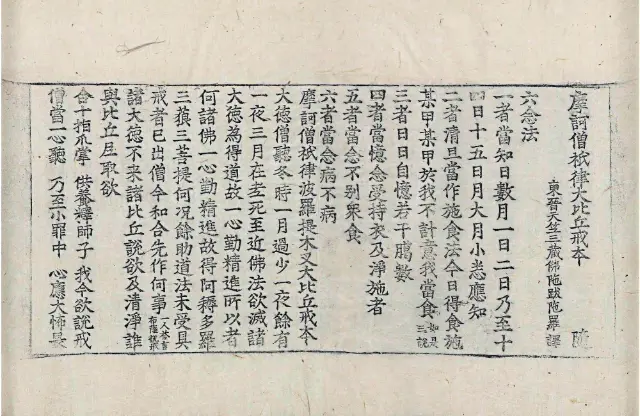 摩訶僧祇律大比丘戒本 隨
東晉天竺三藏佛陁跋陁羅譯
六念法
一者當知日數月一日二日乃至十
四日十五日月大月小悉應知
二者清旦當作施食法今日得食施
某甲某甲於我不計意我當食如是三說
三者日日自憶若干臈數
四者當憶念受持衣及淨施者
五者當念不別衆食
六者當念病不病
摩訶僧祇律波羅提木叉大比丘戒本
大德僧聽冬時一月過少一夜餘有
一夜三月在老死至近佛法欲滅諸
大德為得道故一心勤精進所以者
何諸佛一心勤精進故得阿耨多羅
三藐三菩提何況餘助道法未受具
戒者已出僧今和合先作何事
諸大德不來諸比丘說欲及清淨誰
與比丘尼取欲
合十指爪掌 供養釋師子 我今欲說戒
僧當一心聽 乃至小罪中 心應大怖畏